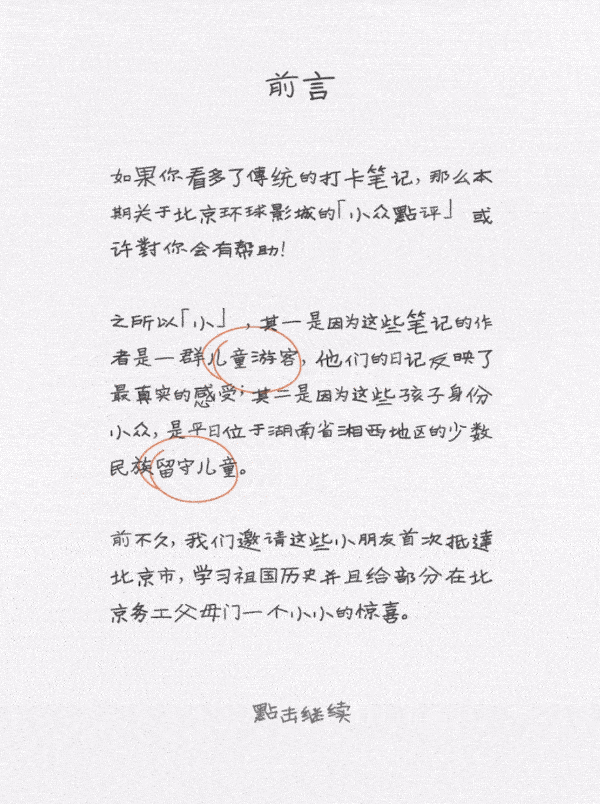 前言
如果你看多了傳统的打卡笔记，那么本
期关于北京环球影城的「小众點评」 或
许對你会有帮助！
之所以「小」，其一是因为这些笔记的作
者是一群儿童游客，他们的日记反映了
最真实的感受；其二是因为这些孩子身份
小众，是平日位于湖南省湘西地区的少数
民族留守儿童。
前不久，我们邀请这些小朋友首次抵達
北京市，学习祖国历史并且给部分在北
京务工父母们一个小小的惊喜。
點击继续